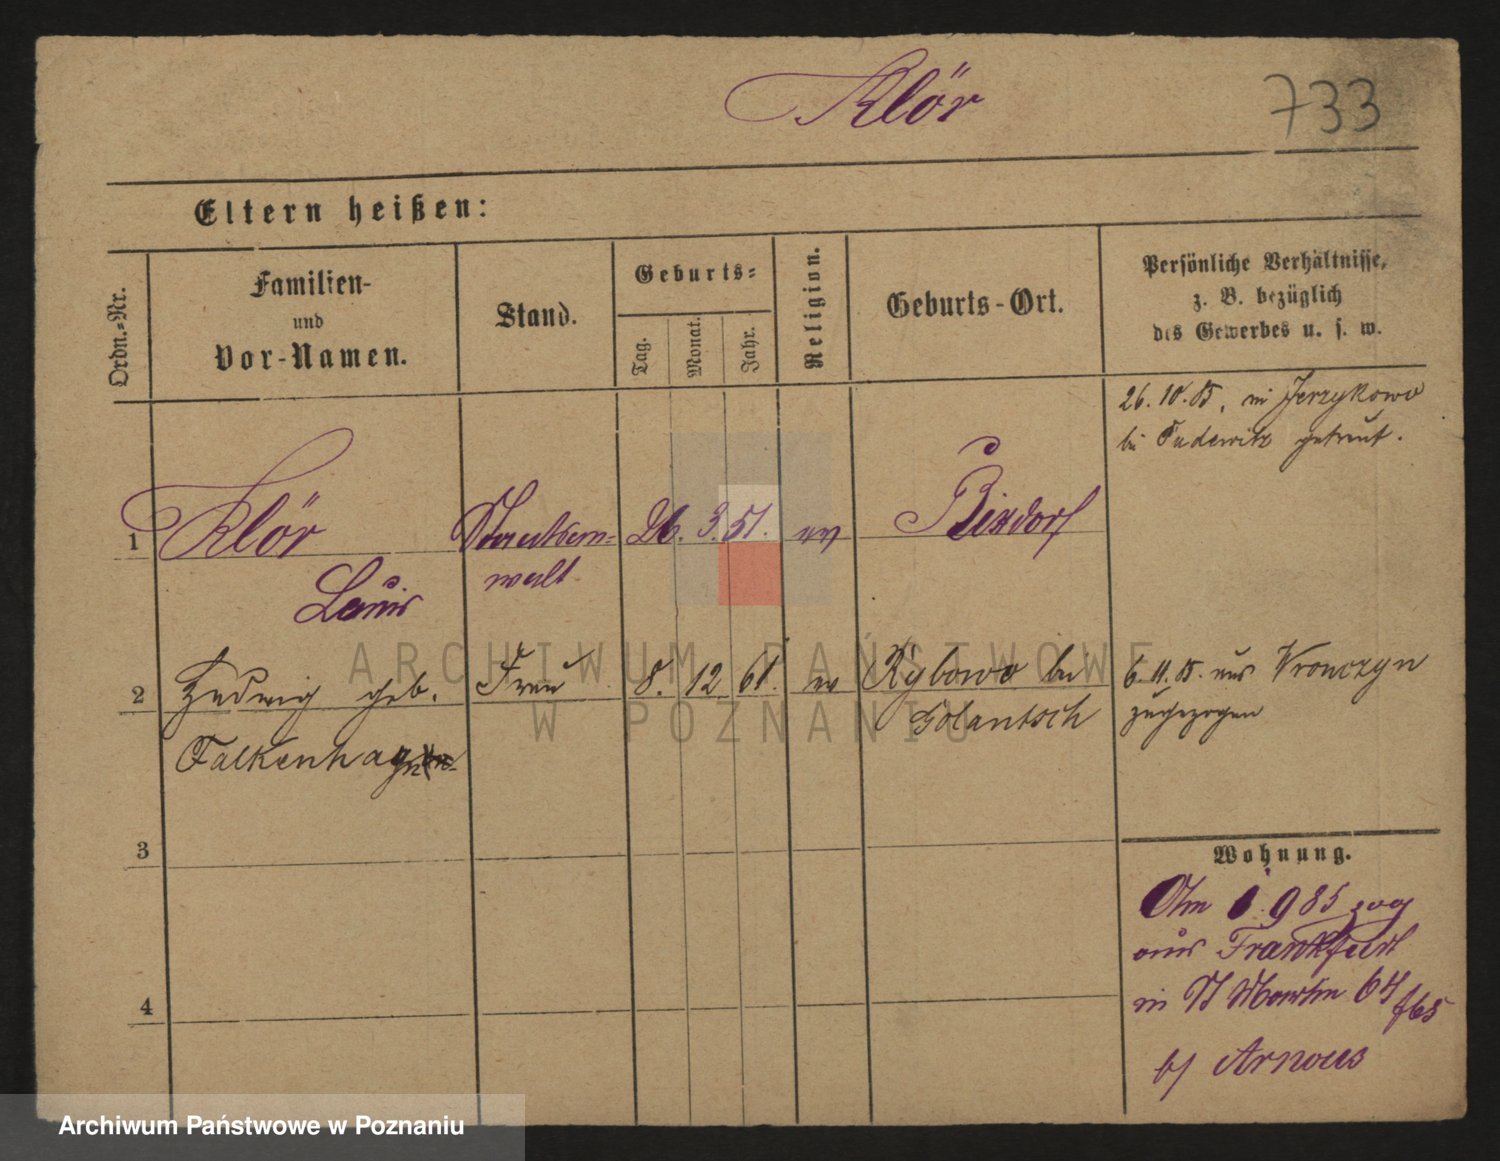 Klör
733
Eltern heißen:
Ordn.-Nr.
Familien-
und
Vor-Namen.
Stand.
Geburts-
Tag.
Monat.
Jahr.
Religion.
Geburts-Ort.
Persönliche Verhältnisse,
z. B. bezüglich
des Gewerbes u. s. w.
26. 10. 85, in Jerzykowo
bei Pudewitz getraut.
1 Klör Staatsan- 26. 3. 51. ev Rixdorf
Louis walt
2 Hedwig geb. Frau 8. 12 61. ev Rybowo bei
Falkenhagen Golantsch
6. 11. 85. aus Wronczyn
zugezogen
3
4
Wohnung.
Am 1. 9 85 zog
aus Frankfurt
in St Martin 64/65
b/ Arnous
ARCHIWUM PAŃSTWOWE
W POZNANIU
Archiwum Państwowe w Poznaniu